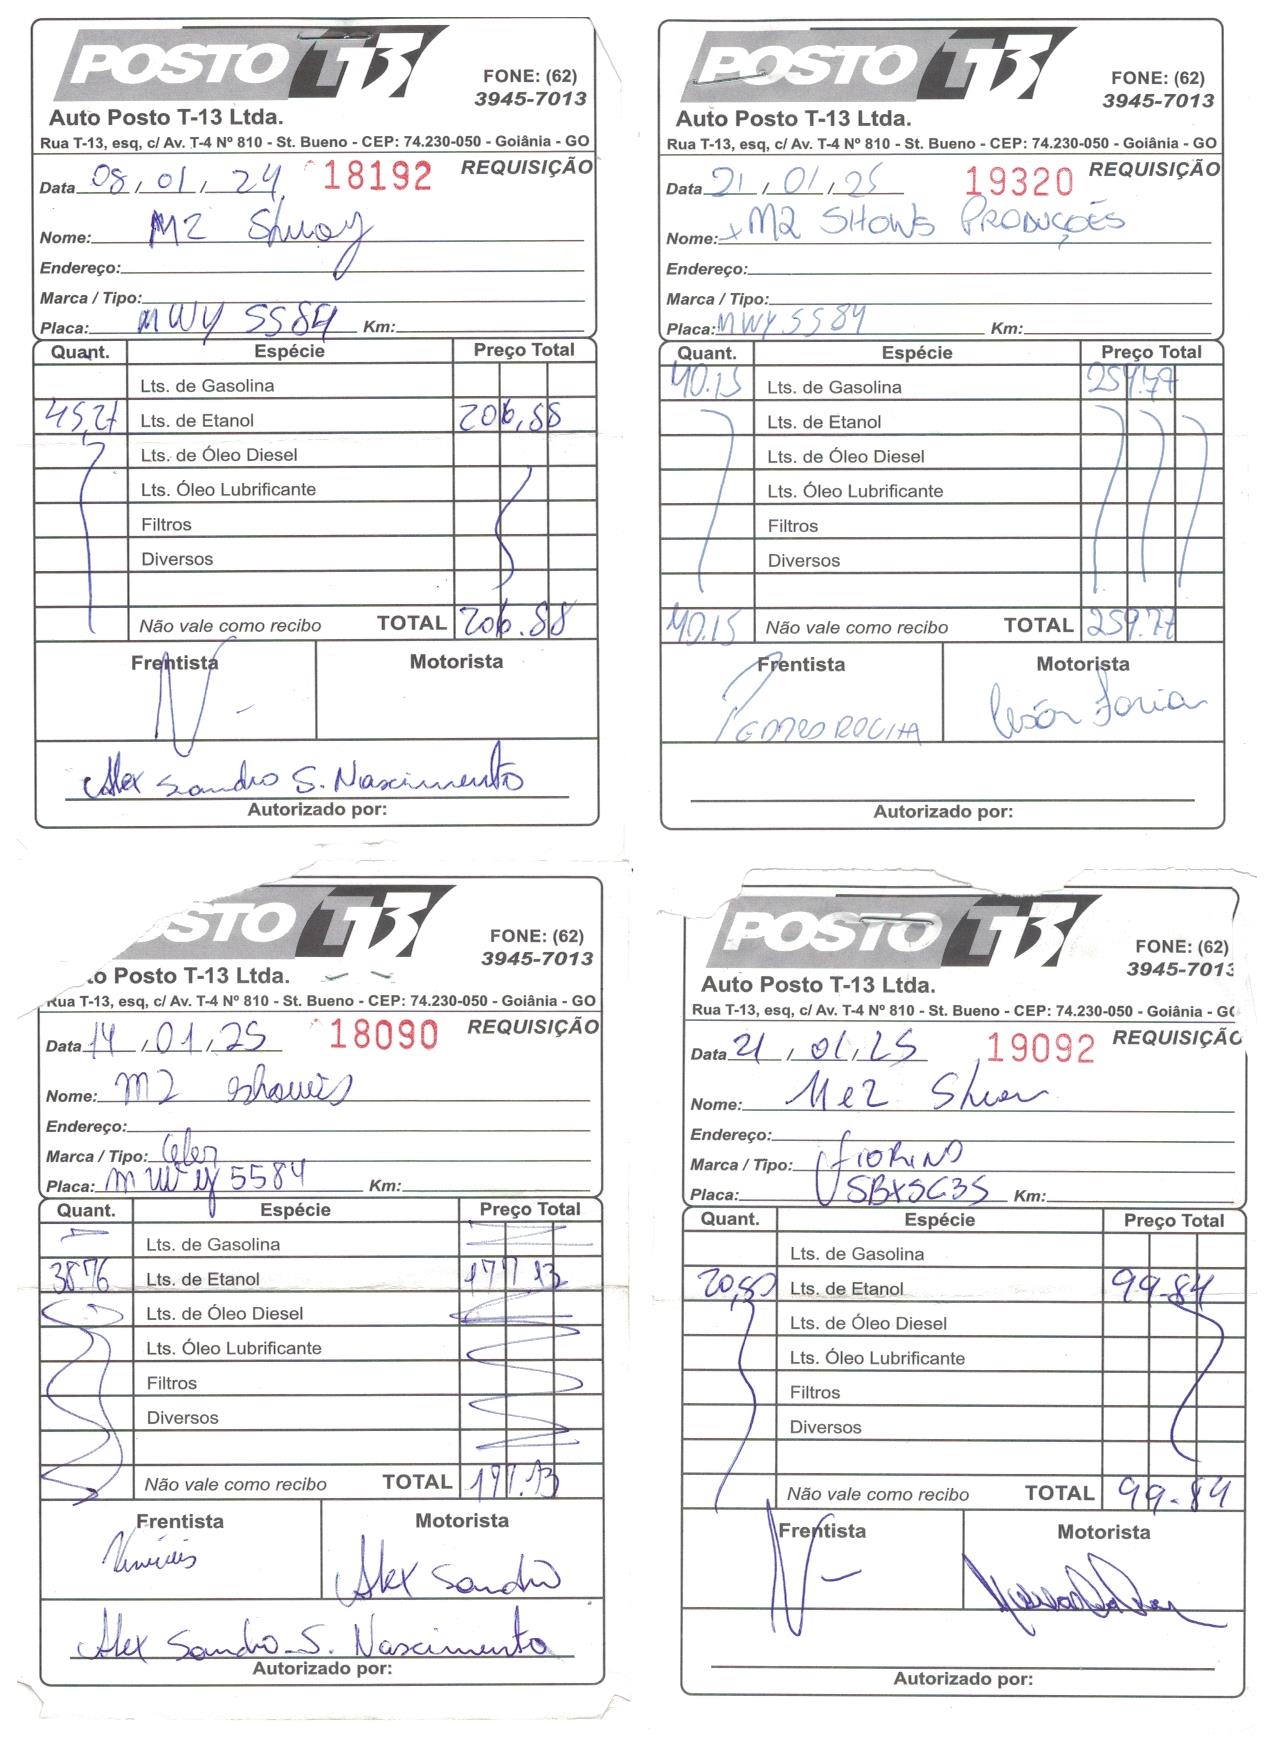 POSTO T-13
FONE: (62)
3945-7013
Auto Posto T-13 Ltda.
Rua T-13, esq, c/ Av. T-4 Nº 810 - St. Bueno - CEP: 74.230-050 - Goiânia - GO
Data 08 / 01 / 24 18192 REQUISIÇÃO
Nome: M2
Endereço:
Marca / Tipo:
Placa: MWY 5584 Km:
Quant. Espécie Preço Total
Lts. de Gasolina
45,27 Lts. de Etanol 206,88
Lts. de Óleo Diesel
Lts. Óleo Lubrificante
Filtros
Diversos
Não vale como recibo TOTAL 206.88
Frentista Motorista
Alex Sandro S. Nascimento
Autorizado por:
POSTO T-13
FONE: (62)
3945-7013
Auto Posto T-13 Ltda.
Rua T-13, esq, c/ Av. T-4 Nº 810 - St. Bueno - CEP: 74.230-050 - Goiânia - GO
Data 21 / 01 / 25 19320 REQUISIÇÃO
Nome: x M2 SHOWS PRODUÇÕES
Endereço:
Marca / Tipo:
Placa: MWY 5584 Km:
Quant. Espécie Preço Total
40.15 Lts. de Gasolina 259.77
Lts. de Etanol
Lts. de Óleo Diesel
Lts. Óleo Lubrificante
Filtros
Diversos
40.15 Não vale como recibo TOTAL 259.77
Frentista Motorista
ROCHA
Autorizado por:
STO T-13
FONE: (62)
3945-7013
to Posto T-13 Ltda.
Rua T-13, esq, c/ Av. T-4 Nº 810 - St. Bueno - CEP: 74.230-050 - Goiânia - GO
Data 14 / 01 / 25 18090 REQUISIÇÃO
Nome: M2
Endereço:
Marca / Tipo:
Placa: MWY 5584 Km:
Quant. Espécie Preço Total
Lts. de Gasolina
38.76 Lts. de Etanol 177.13
Lts. de Óleo Diesel
Lts. Óleo Lubrificante
Filtros
Diversos
Não vale como recibo TOTAL 177.13
Frentista Motorista
Alex Sandro
Alex Sandro S. Nascimento
Autorizado por:
POSTO T-13
FONE: (62)
3945-7013
Auto Posto T-13 Ltda.
Rua T-13, esq, c/ Av. T-4 Nº 810 - St. Bueno - CEP: 74.230-050 - Goiânia - GO
Data 21 / 01 / 25 19092 REQUISIÇÃO
Nome:
Endereço:
Marca / Tipo: FIORINO
Placa: SBX5G35 Km:
Quant. Espécie Preço Total
Lts. de Gasolina
20,80 Lts. de Etanol 99.84
Lts. de Óleo Diesel
Lts. Óleo Lubrificante
Filtros
Diversos
Não vale como recibo TOTAL 99.84
Frentista Motorista
Autorizado por: